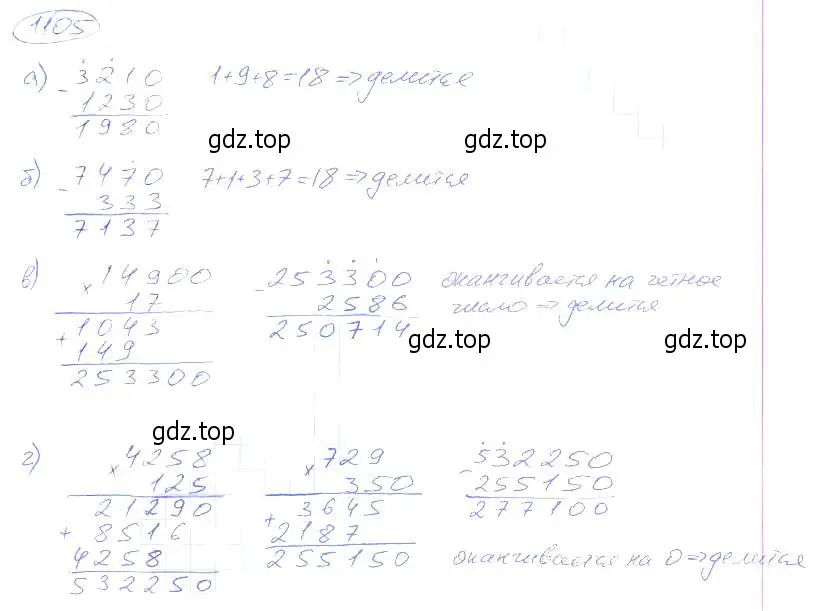 1105
а) 3210 1+9+8=18 => делится
- 1230
1980
gdz.top gdz.top
б) 7470 7+1+3+7=18 => делится
- 333
7137
в) 14900 253300 оканчивается на четное
× 17 - 2586 число => делится
1043 250714
+ 149
253300
gdz.top gdz.top
г) 4258 729 532250
× 125 × 350 - 255150
21290 3645 277100
+ 8516 + 2187
4258 255150 оканчивается на 0 => делится
532250
gdz.top gdz.top